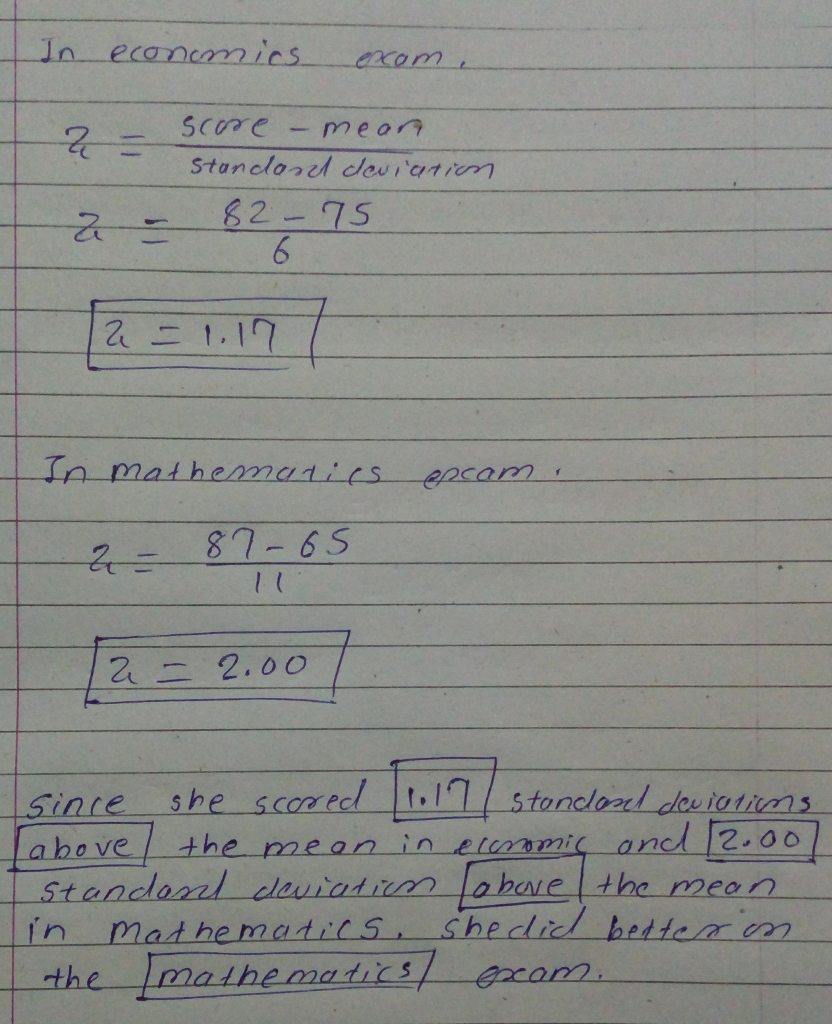 In economics exam.
z = score - mean
standard deviation
z = 82 - 75
6
z = 1.17
In mathematics exam.
z = 87 - 65
11
z = 2.00
Since she scored 1.17 standard deviations
above the mean in economic and 2.00
standard deviation above the mean
in mathematics. She did better on
the mathematics exam.